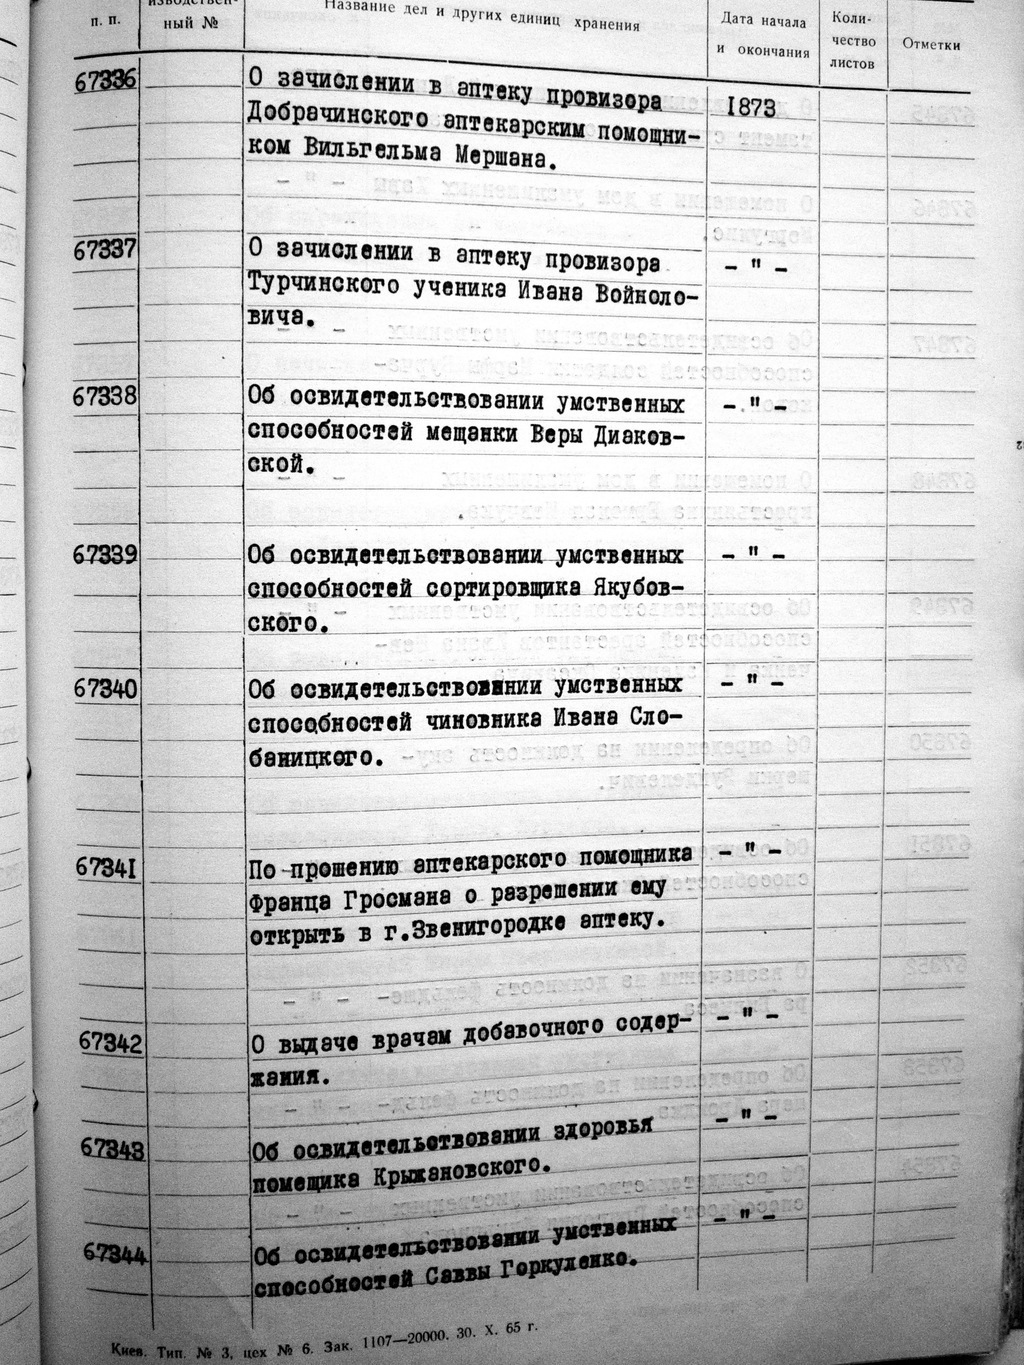 п. п.
ный №
Название дел и других единиц хранения
Дата начала
и окончания
Коли-
чество
листов
Отметки
67336
О зачислении в аптеку провизора
Добрачинского аптекарским помощни-
ком Вильгельма Мершана.
1873
67337
О зачислении в аптеку провизора
Турчинского ученика Ивана Войноло-
вича.
– " –
67338
Об освидетельствовании умственных
способностей мещанки Веры Диаков-
ской.
– " –
67339
Об освидетельствовании умственных
способностей сортировщика Якубов-
ского.
– " –
67340
Об освидетельствовании умственных
способностей чиновника Ивана Сло-
баницкого.
– " –
67341
По прошению аптекарского помощника
Франца Гросмана о разрешении ему
открыть в г.Звенигородке аптеку.
– " –
67342
О выдаче врачам добавочного содер-
жания.
– " –
67343
Об освидетельствовании здоровья
помещика Крыжановского.
– " –
67344
Об освидетельствовании умственных
способностей Саввы Горкуленко.
– " –
Киев. Тип. № 3, цех № 6. Зак. 1107—20000. 30. X. 65 г.